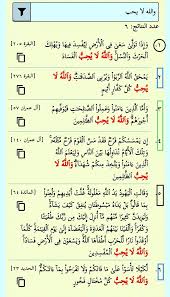 والله لا يحب
عدد النتائج: ٦
١. وَإِذَا تَوَلَّىٰ سَعَىٰ فِي الْأَرْضِ لِيُفْسِدَ فِيهَا وَيُهْلِكَ [البقرة ٢٠٥]
الْحَرْثَ وَالنَّسْلَ وَاللَّهُ لَا يُحِبُّ الْفَسَادَ
٢. يَمْحَقُ اللَّهُ الرِّبَا وَيُرْبِي الصَّدَقَاتِ وَاللَّهُ لَا [البقرة ٢٧٦]
يُحِبُّ كُلَّ كَفَّارٍ أَثِيمٍ
٣. وَأَمَّا الَّذِينَ آمَنُوا وَعَمِلُوا الصَّالِحَاتِ فَيُوَفِّيهِمْ [آل عمران ٥٧]
أُجُورَهُمْ وَاللَّهُ لَا يُحِبُّ الظَّالِمِينَ
٤. إِن يَمْسَسْكُمْ قَرْحٌ فَقَدْ مَسَّ الْقَوْمَ قَرْحٌ مِّثْلُهُ [آل عمران ١٤٠]
وَتِلْكَ الْأَيَّامُ نُدَاوِلُهَا بَيْنَ النَّاسِ وَلِيَعْلَمَ اللَّهُ
الَّذِينَ آمَنُوا وَيَتَّخِذَ مِنكُمْ شُهَدَاءَ وَاللَّهُ لَا يُحِبُّ
الظَّالِمِينَ
٥. وَقَالَتِ الْيَهُودُ يَدُ اللَّهِ مَغْلُولَةٌ غُلَّتْ أَيْدِيهِمْ وَلُعِنُوا [المائدة ٦٤]
بِمَا قَالُوا بَلْ يَدَاهُ مَبْسُوطَتَانِ يُنفِقُ كَيْفَ يَشَاءُ
وَلَيَزِيدَنَّ كَثِيرًا مِّنْهُم مَّا أُنزِلَ إِلَيْكَ مِن رَّبِّكَ طُغْيَانًا
وَكُفْرًا وَأَلْقَيْنَا بَيْنَهُمُ الْعَدَاوَةَ وَالْبَغْضَاءَ إِلَىٰ يَوْمِ الْقِيَامَةِ كُلَّمَا
أَوْقَدُوا نَارًا لِّلْحَرْبِ أَطْفَأَهَا اللَّهُ وَيَسْعَوْنَ فِي الْأَرْضِ فَسَادًا
وَاللَّهُ لَا يُحِبُّ الْمُفْسِدِينَ
٦. لِّكَيْلَا تَأْسَوْا عَلَىٰ مَا فَاتَكُمْ وَلَا تَفْرَحُوا بِمَا آتَاكُمْ [الحديد ٢٣]
وَاللَّهُ لَا يُحِبُّ كُلَّ مُخْتَالٍ فَخُورٍ